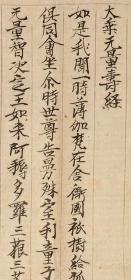 大乘无量壽經
如是我聞一時薄伽梵在舍衛國祇樹給
俱同會坐尒時世尊告曼殊室利童子
无量智決定王如来阿耨多羅三藐三菩